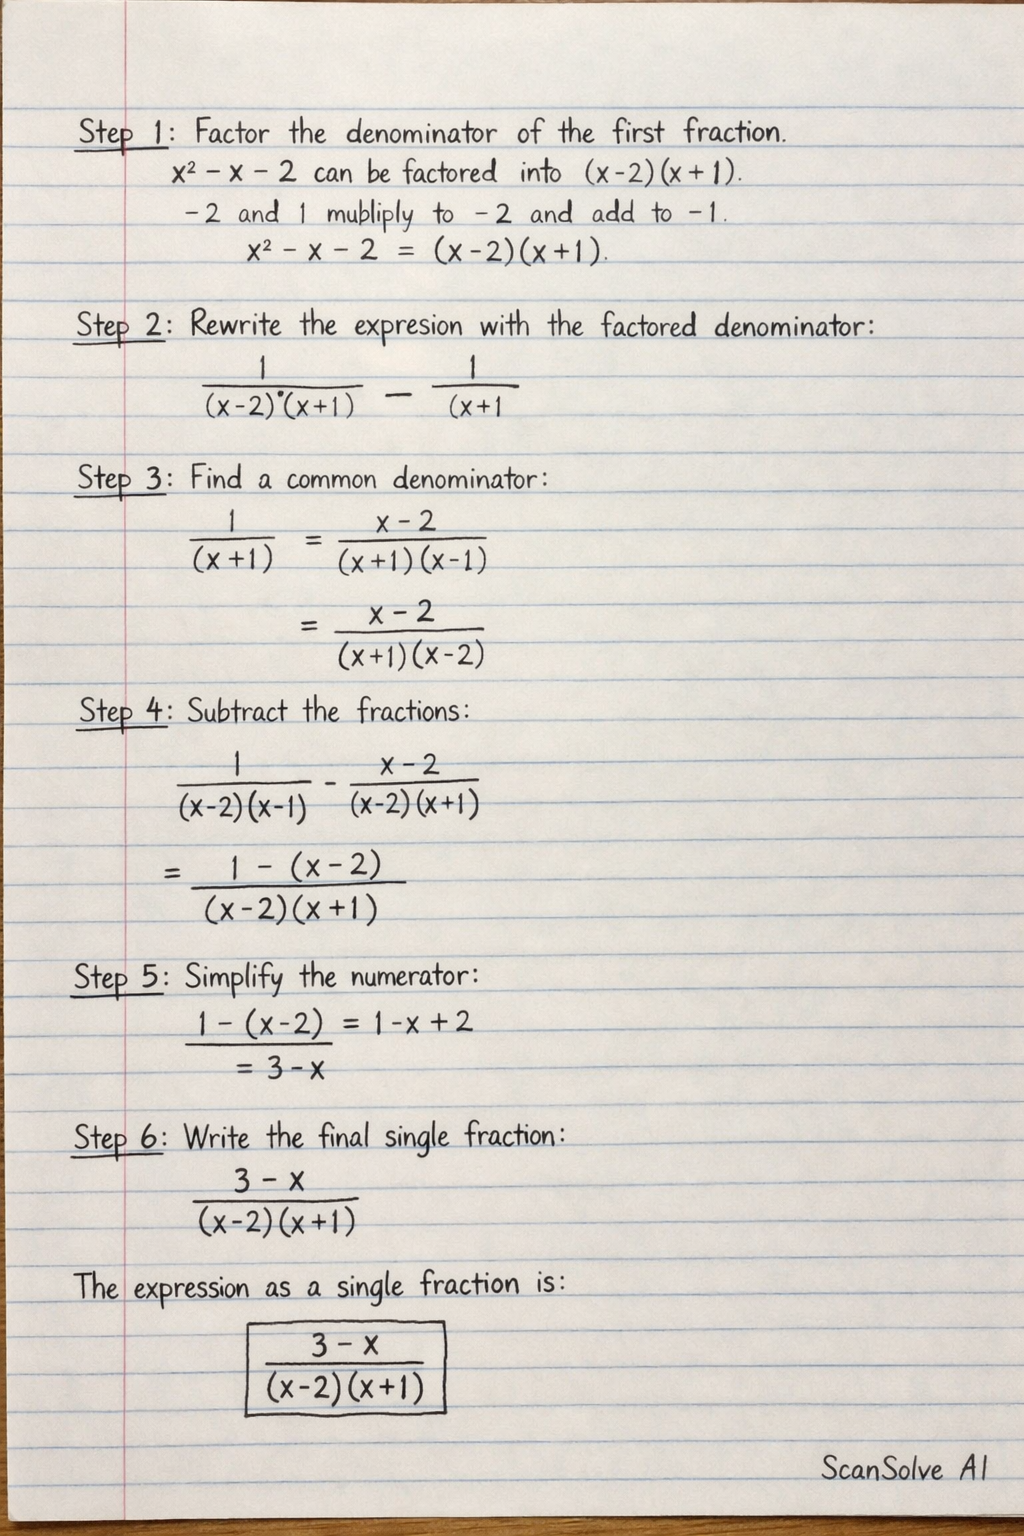 Step 1: Factor the denominator of the first fraction.
x² - x - 2 can be factored into (x-2)(x+1).
-2 and 1 mubliply to -2 and add to -1.
x² - x - 2 = (x-2)(x+1).
Step 2: Rewrite the expresion with the factored denominator:
1 1
(x-2)·(x+1) — (x+1
Step 3: Find a common denominator:
1 x-2
(x+1) = (x+1)(x-1)
= x-2
(x+1)(x-2)
Step 4: Subtract the fractions:
1 - x-2
(x-2)(x-1) (x-2)(x+1)
= 1 - (x-2)
(x-2)(x+1)
Step 5: Simplify the numerator:
1 - (x-2) = 1-x+2
= 3-x
Step 6: Write the final single fraction:
3 - x
(x-2)(x+1)
The expression as a single fraction is:
3 - x
(x-2)(x+1)
ScanSolve AI